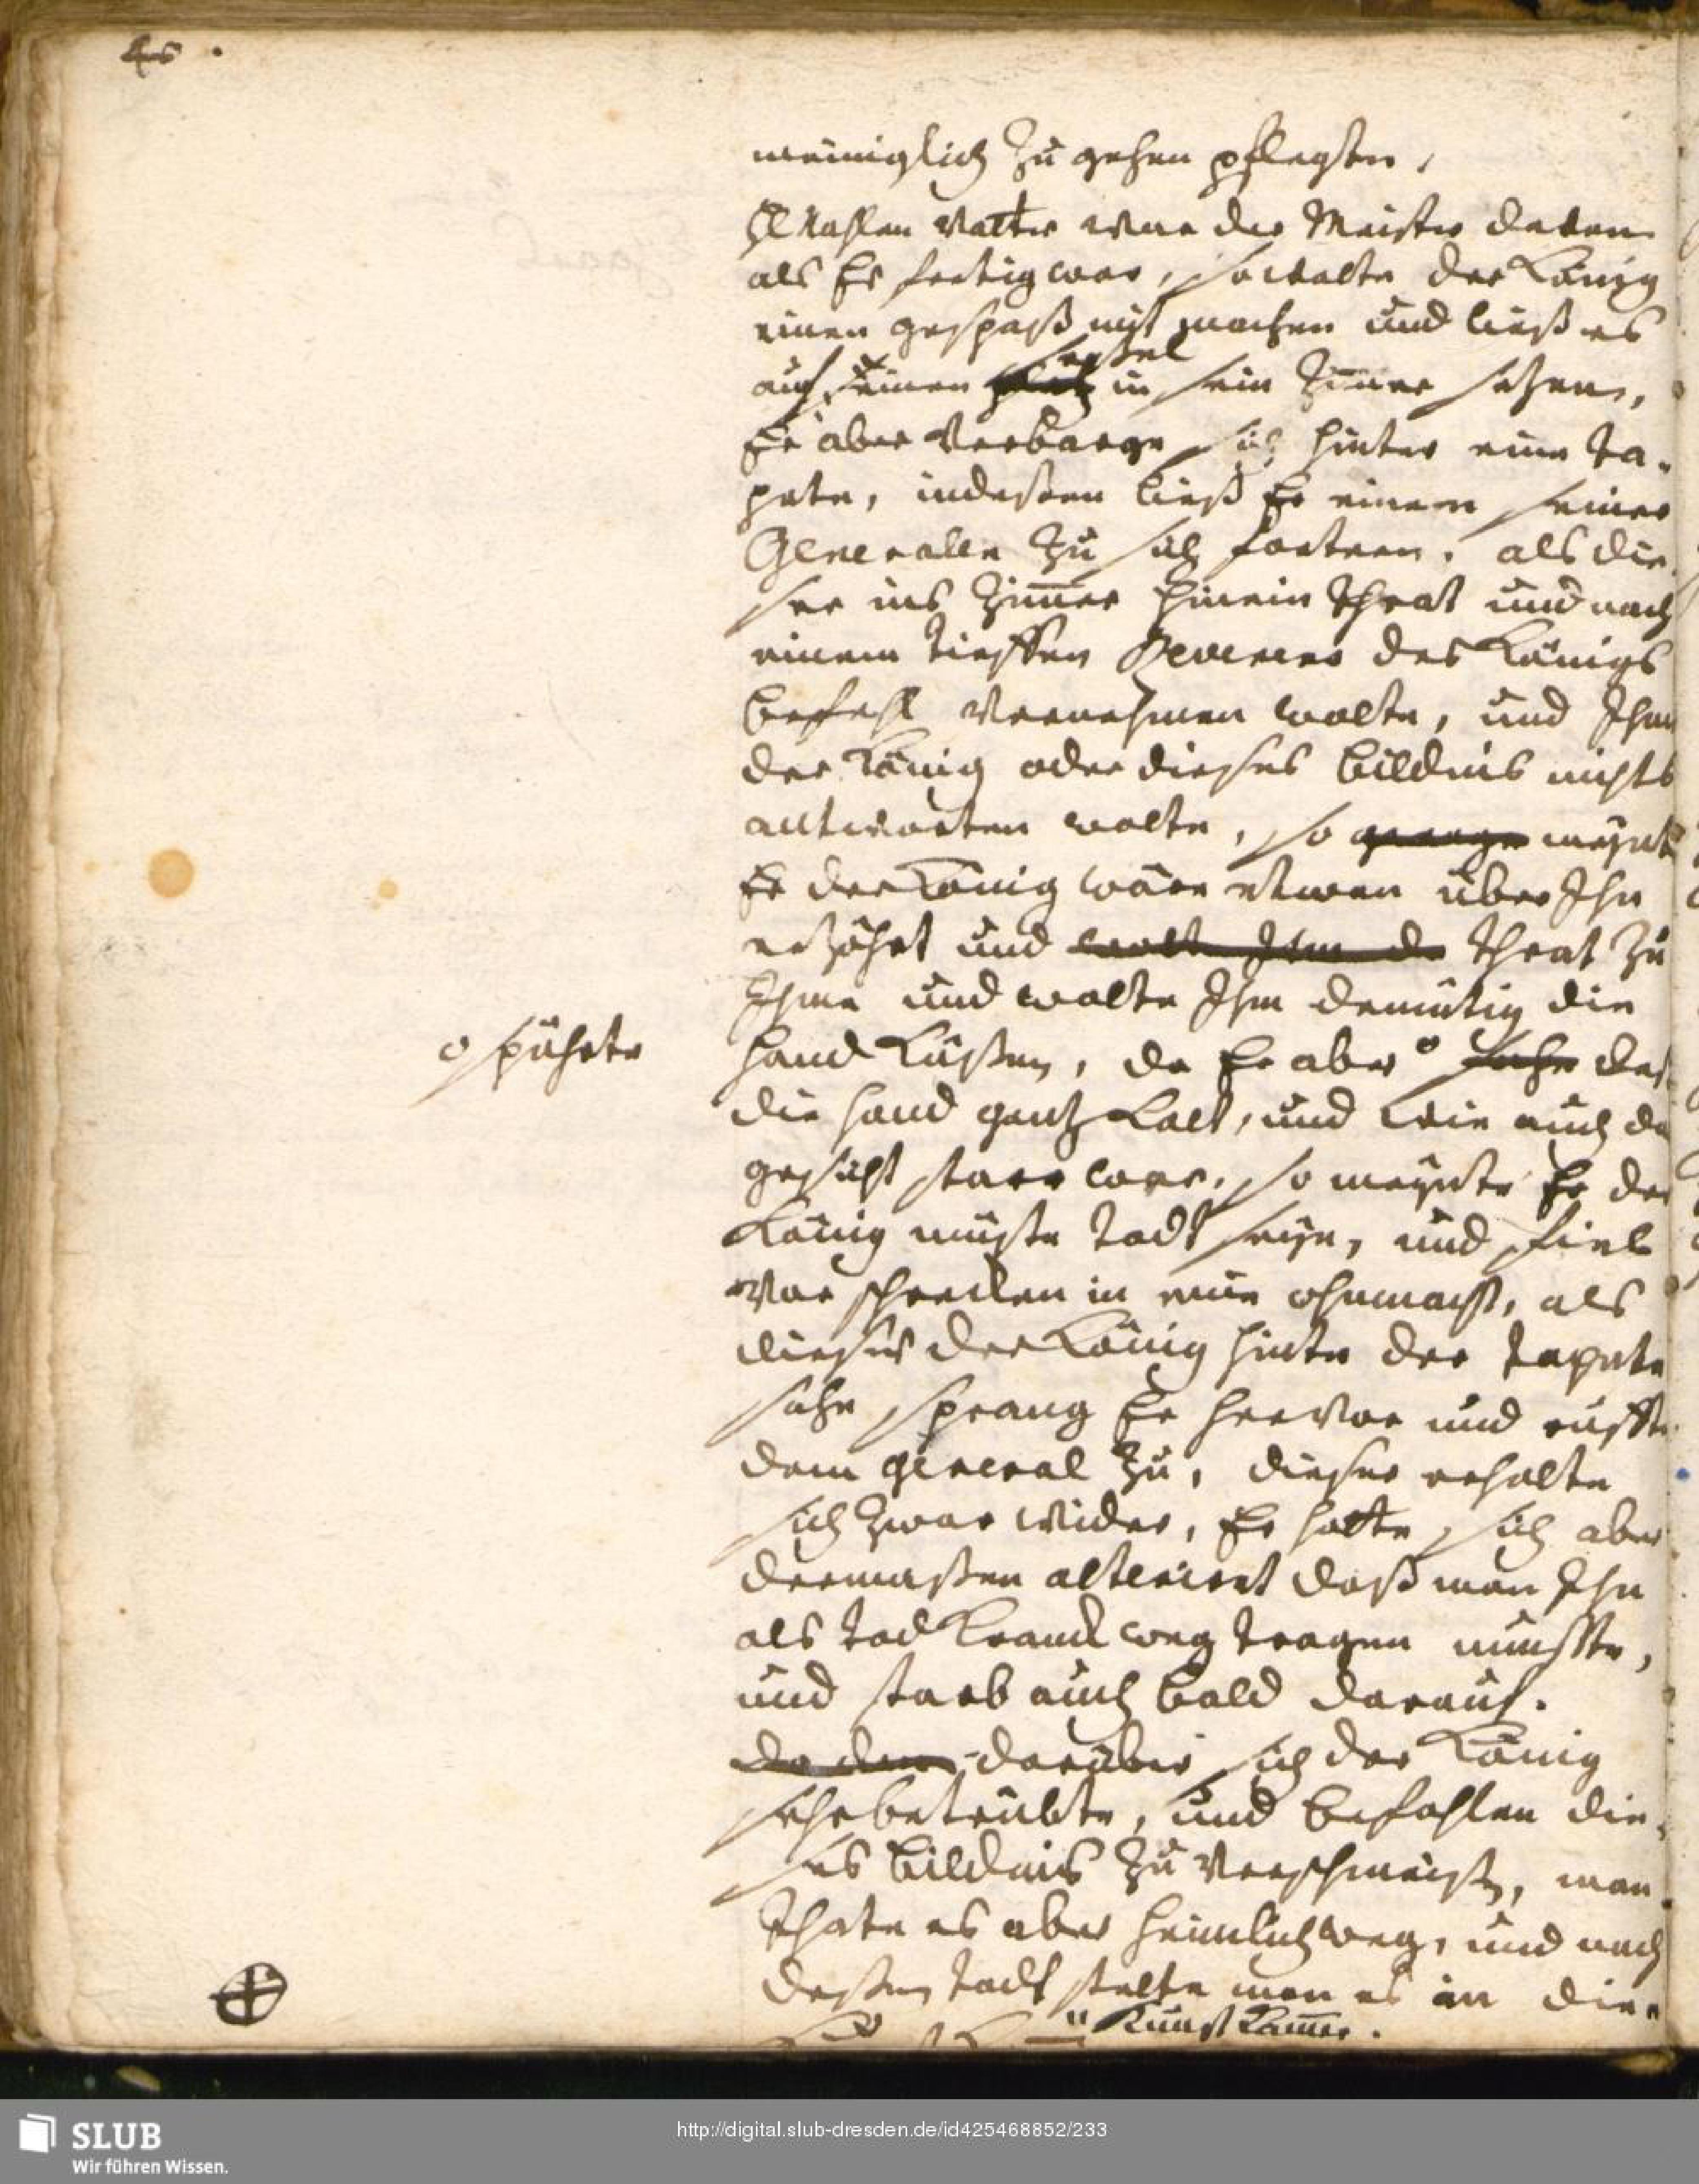 meiniglich zu gehen pflegten,
Vatter war der Meister davon
als Er fertig war, so wolte der König
einen gespaß mit machen und ließ es
auf seinen seßel in sein Zim̅er setzen,
Er aber verbarge sich hinter eine ta-
pete, indeßen ließ Er einem seiner
Generalen zu sich fortern. als die-
ser ins Zim̅er hinein thrat und nach
einem tieffen Reverens des Königs
befehl vernehmen wolte, und Ihm
der König oder dieses bildnis nichts
antworten wolte, so meynt
Er der König wäre etwan über Ihn
erzöhrt und wolt Ihm de thrat zu
Ihme und wolte Ihm demütig die
o spührte
hand küßen, da Er aber o sahe das
die hand gantz kalt, und wie auch da
gesicht starr war, so meynte Er der
König müste todt seyn, und fiel
vor schrecken in eine ohnmacht, als
dieses der König hinter der tapete
sahe sprang Er hervor und ruffte
dem General zu, dieser erholte
sich zwar wider, Er hatte sich aber
dermaßen alterirt daß man Ihn
als tod kranck weg tragen muuste,
und starb auch bald darauf.
darüber sich der König
sehr betrübte, und befohlen die-
ses bildnis zu verschmeißen, man
thate es aber heimlich weg, und nach
deßen todt stelte man es in die
" Kunst Cam̅er.
SLUB
Wir führen Wissen.
http://digital.slub-dresden.de/id425468852/233